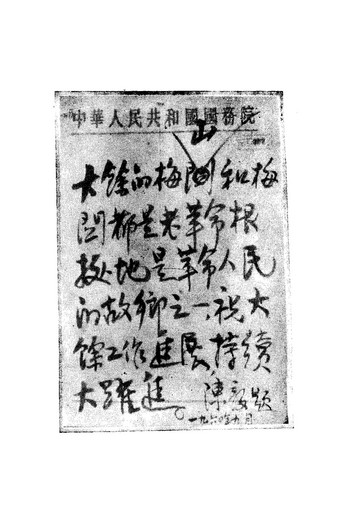 中華人民共和國國務院
山
大餘的梅関和梅
関都是老革命根
据地是革命人民
的故鄉之一,祝大
餘工作進展持續
大躍進。陳毅題
一九六〇年九月